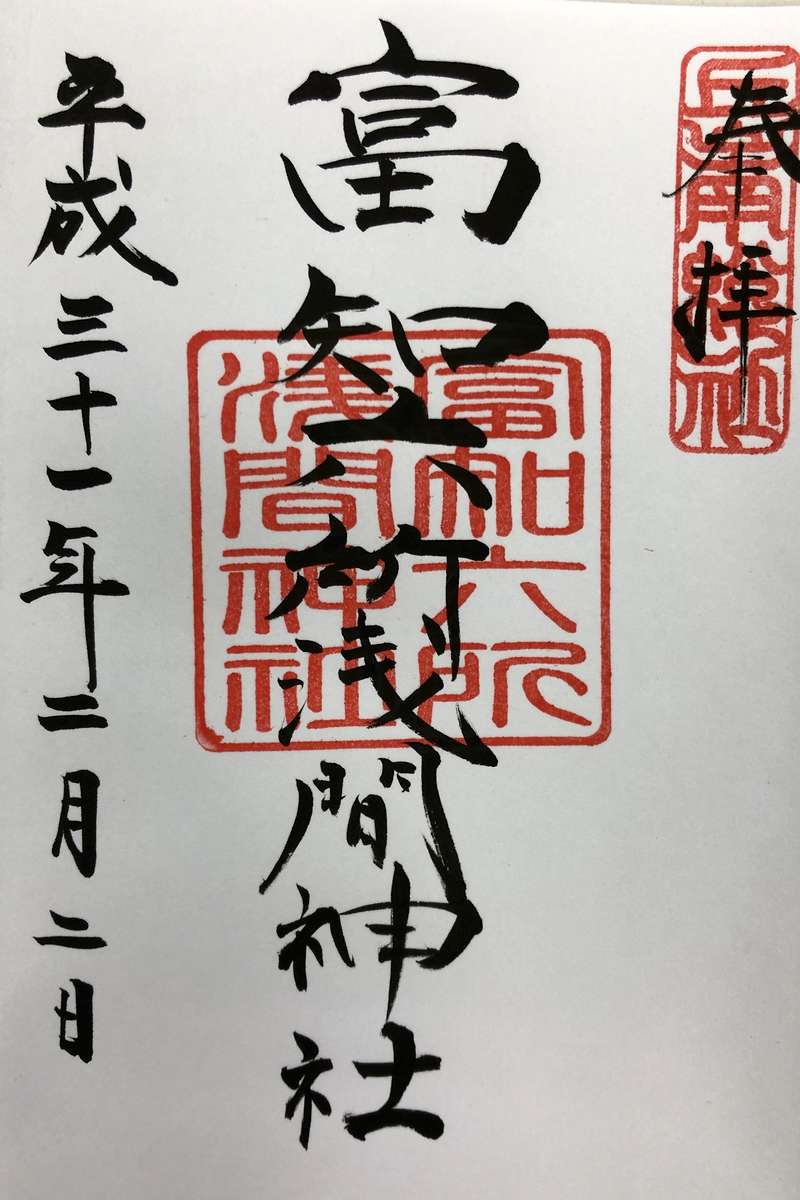 奉拝
富知六所浅間神社
富知六所
淺間神社
平成三十一年二月二日